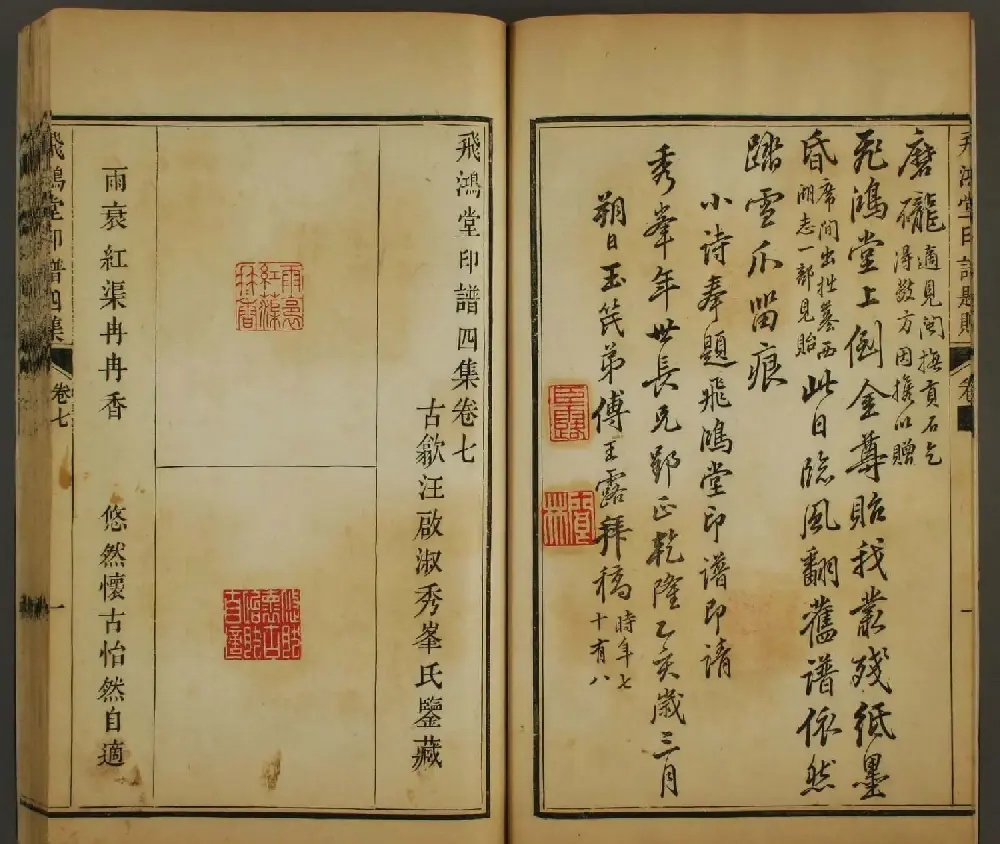 磨礲
適見閩撫貢石乞
得數方因攜以贈
飛鴻堂上倒金尊貽我叢殘紙墨
昏
席間出拙纂西
湖志一部見貽
此日臨風翻舊譜依然
踏雪爪留痕
小詩奉題飛鴻堂印譜即請
秀峯年世長兄郢正乾隆乙亥歲三月
朔日玉笥弟傅王露拜稿
時年七
十有八
飛鴻堂印譜四集卷七
古歙汪啟淑秀峯氏鑒藏
雨裛紅渠冉冉香
悠然懷古怡然自適
雨裛紅渠冉冉香
悠然懷古怡然自適
飛鴻堂印譜四集
卷七
一